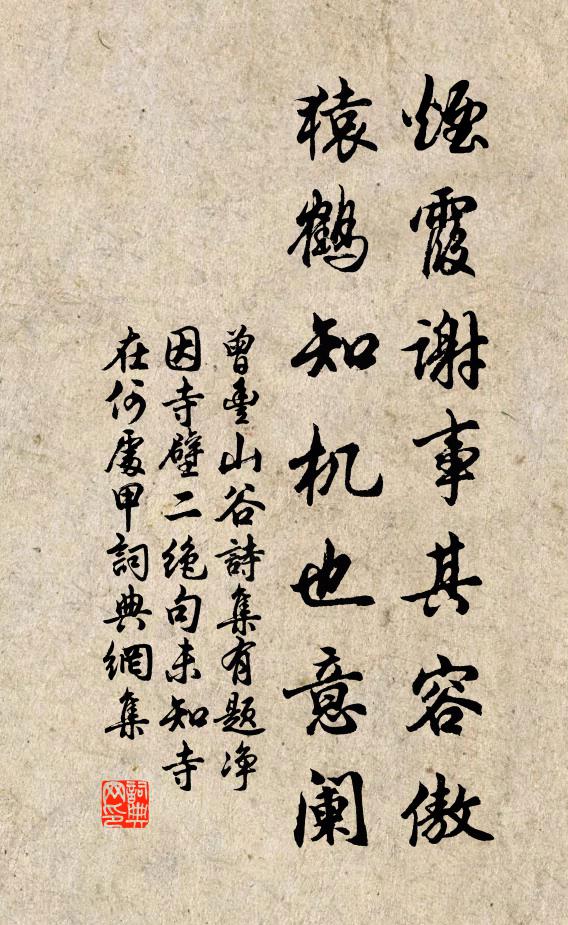 煙霞謝事其容傲
猿鶴知机也意阑
曾豊山谷詩集有題净
因寺壁二绝句未知寺
在何處甲詞典網集
詞典网印